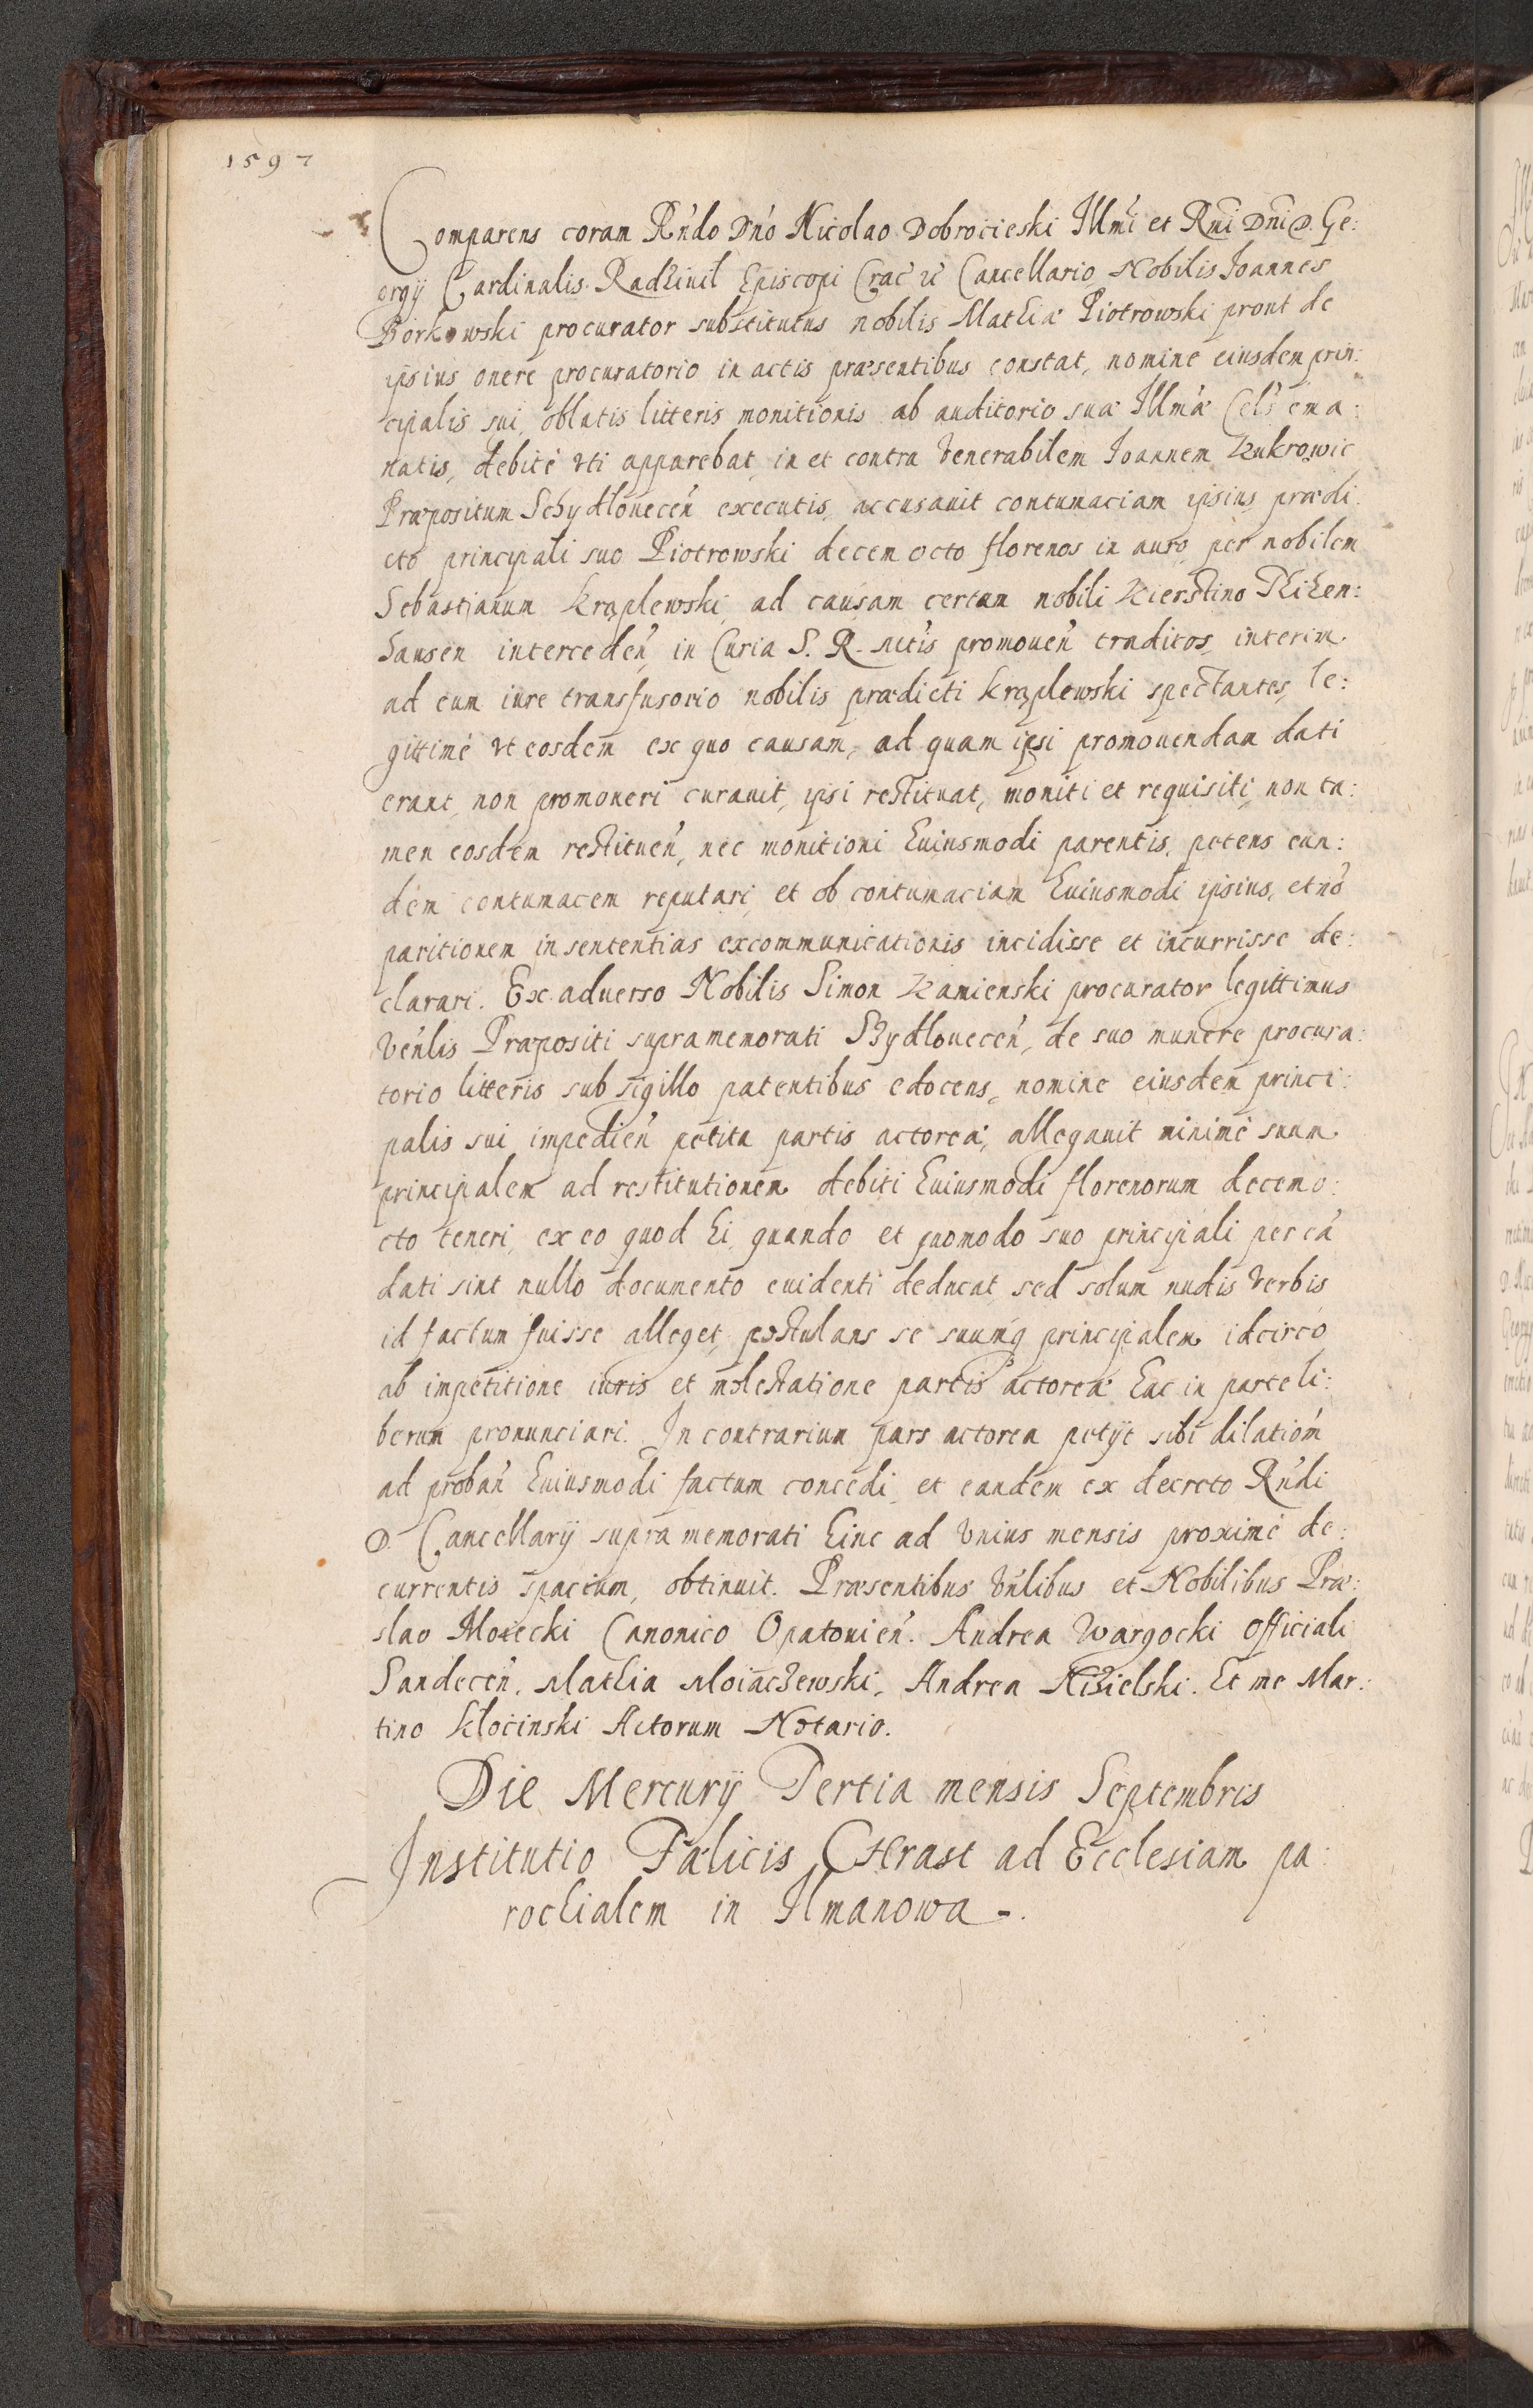 1597
Comparens coram Rńdo Dńo Nicolao Dobrocieski Illmi et Rmi Dni D. Ge:
orgij Cardinalis Radziuil Episcopi Crać Cancellario Nobilis Joannes
Borkowski procurator substitutus nobilis Mathiæ Piotrowski prout de
ipsius onere procuratorio in actis præsentibus constat, nomine eiusdem prin:
cipalis sui, oblatis litteris monitionis ab auditorio suæ Illmæ Cels ema:
natis, debitè vti apparebat, in et contra Venerabilem Joannem Kukrowic
Præpositum Schydłoueceń executis, accusauit contumaciam ipsius, prædi
cto principali suo Piotrowski decem octo florenos in auro, per nobilem
Sebastianum Kręplewski, ad causam certam nobili Kierstino Thizen:
hausen intercedeń, in Curia S. R. Mttis promoueń traditos, interim
ad eum iure transfusorio nobilis prædicti Kręplewski spectantes, le:
gittimè vt eosdem ex quo causam, ad quam ipsi promouendam dati
erant, non promoueri curauit, ipsi restituat, moniti et requisiti, non ta:
men eosdem restitueń, nec monitioni huiusmodi parentis, petens eun:
dem contumacem reputari, et ob contumaciam huiusmodi ipsius, et nō
paritionem in sententias excommunicationis incidisse et incurrisse de:
clarari. Ex aduerso Nobilis Simon Kamienski procurator legittimus
Veńlis Præpositi supramemorati Shydłoueceń, de suo munere procura:
torio litteris sub sigillo patentibus edocens, nomine eiusdem princi:
palis sui impedień petita partis actoreæ, allegauit minimè suum
principalem ad restitutionem debiti huiusmodi florenorum decemo:
cto teneri, ex eo quod hi, quando et quomodo suo principali per eā
dati sint nullo documento euidenti deducat, sed solum nudis Verbis
id factum fuisse alleget, postulans se suumq principalem idcirco
ab impetitione iuris et molestatione partis actoreæ hac in parte li:
berum pronunciari. In contrarium pars actorea petijt sibi dilatiom
ad probań huiusmodi factum concedi, et eandem ex decreto Rńdi
D. Cancellarij supra memorati hinc ad Vnius mensis proximè de:
currentis spacium, obtinuit. Præsentibus Vńlibus et Nobilibus Præ:
slao Moiecki Canonico Opatouień. Andrea Wargocki Officiali
Sandeceń. Mathia Moiaczewski, Andrea Niżielski. Et me Mar:
tino Kłocinski Actorum Notario.
Die Mercurij Tertia mensis Septembris
Institutio Fælicis Chrast ad Ecclesiam pa:
rochialem in Ilmanowa.